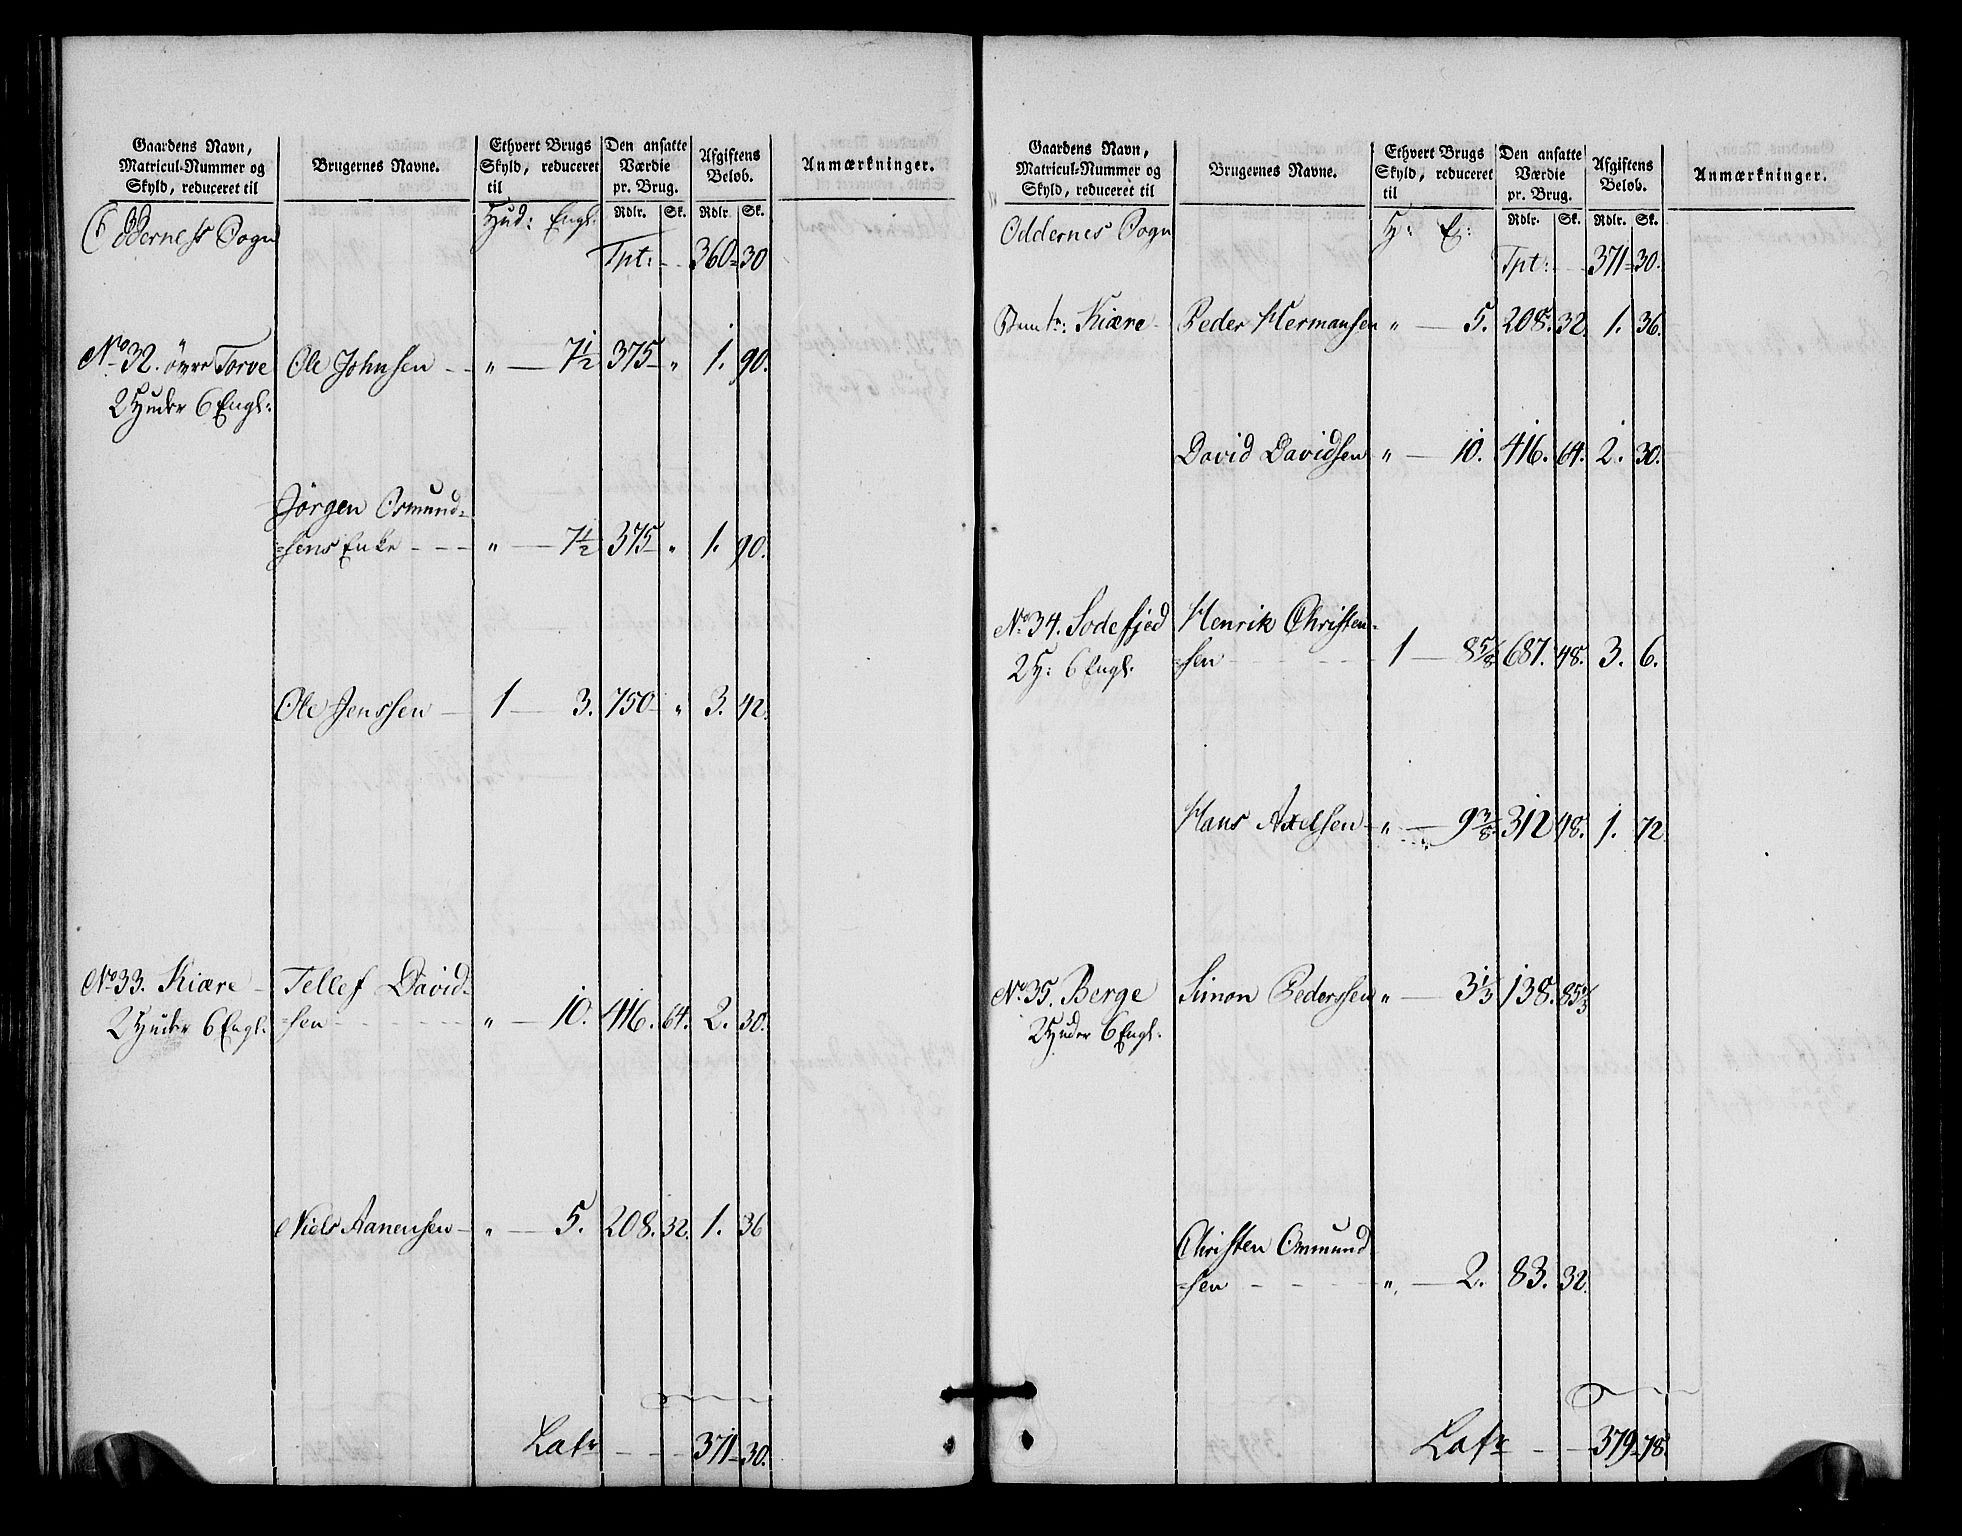 Gaardens Navn, Matricul-Nummer og Skyld, reduceret til | Brugernes Navne. | Ethvert Brugs Skyld, reduceret til | Den ansatte Værdie pr. Brug. | Afgiftens Beløb. | Anmærkninger.
Rdlr. Sk. Rdlr. Sk.
Odderness Sogn Hud: Engl:
Tpt: - - 360 = 30
No 32. övre Torve Ole Johnsen - - " — 7½ 375 - " 1. 90.
2 Huder 6 Engl:
Jørgen Osmund-
=sens Enke - - - " — 7½ 375 - " 1. 90.
Ole Jenssen — 1 — 3. 750 - " 3. 42.
No 33. Kiære - Tellef David-
2 Huder 6 Engl. =sen - - - - " — 10. 416. 64. 2. 30.
Niels Aanensen — " — 5. 208. 32. 1. 36
Latr - - - 371 = 30.
Gaardens Navn, Matricul-Nummer og Skyld, reduceret til | Brugernes Navne. | Ethvert Brugs Skyld, reduceret til | Den ansatte Værdie pr. Brug. | Afgiftens Beløb. | Anmærkninger.
Rdlr. Sk. Rdlr. Sk.
Oddernes Sogn H: E:
Tpt: - - 371 = 30.
Kiære - Peder Hermansen " — 5. 208. 32. 1. 36.
David Davidsen " — 10. 416. 64. 2. 30.
No 34. Sodefjed Henrik Christen-
2 H: 6 Engl. =sen - - - - 1 — 8 5/8 687. 48. 3. 6.
Hans Axelsen - " — 9 3/8. 312 48. 1. 72
No 35. Berge Simon Pederssen " — 3 1/3 138. 85 1/3
2 Huder 6 Engl.
Christen Omund
=sen - - - - " — 2. 83. 32.
Latr - - - 379 = 78.